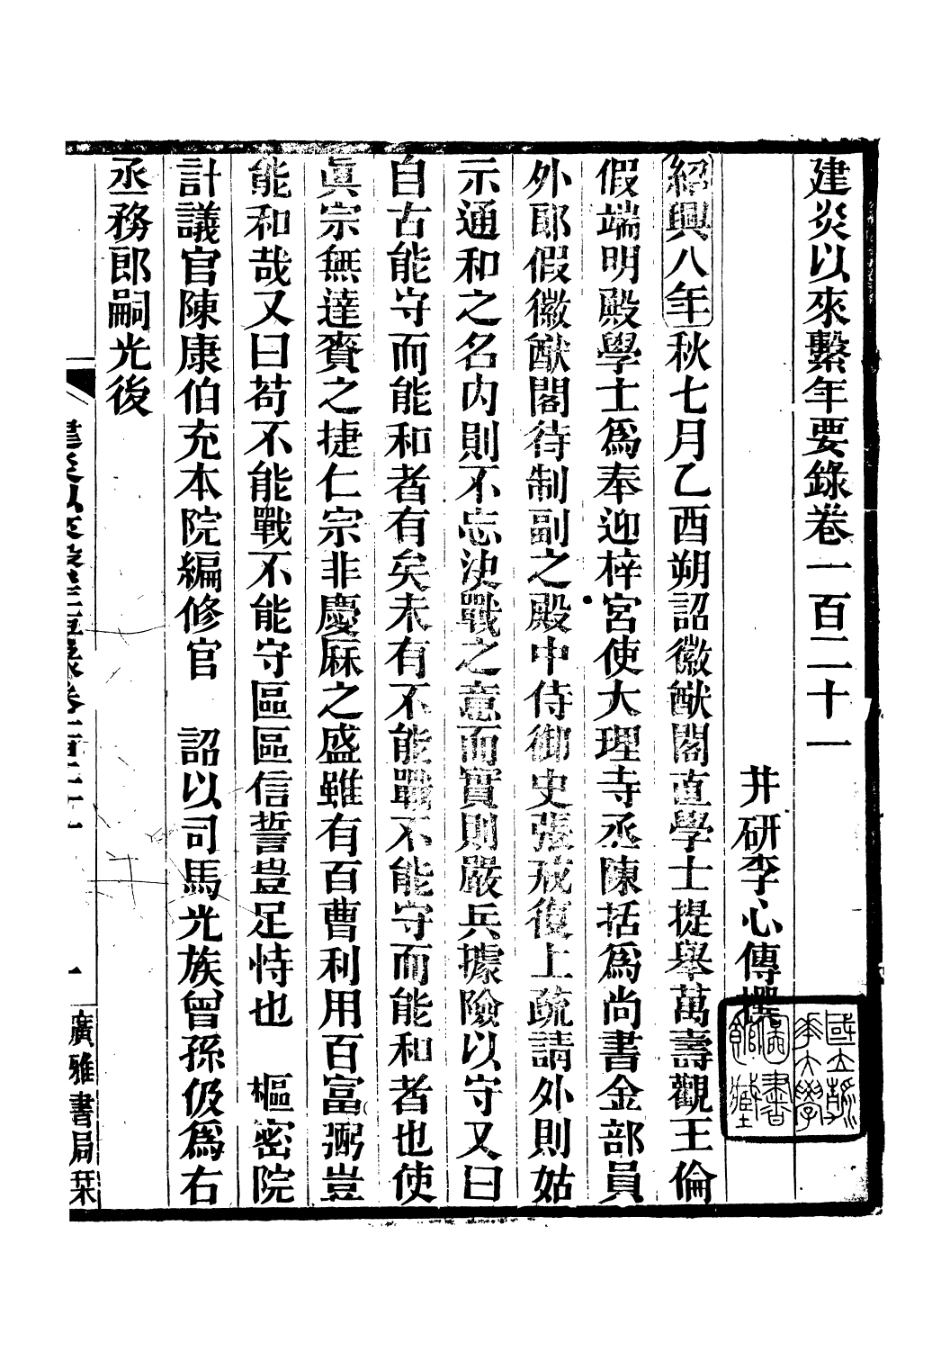 建炎以來繫年要錄卷一百二十一
井研李心傳撰
紹興八年秋七月乙酉朔詔徽猷閣直學士提舉萬壽觀王倫
假端明殿學士為奉迎梓宮使大理寺丞陳括為尚書金部員
外郎假徽猷閣待制副之殿中侍御史張戒復上疏請外則姑
示通和之名內則不忘決戰之意而實則嚴兵據險以守又曰
自古能守而能和者有矣未有不能戰不能守而能和者也使
眞宗無達賚之捷仁宗非慶厤之盛雖有百曹利用百富弼豈
能和哉又曰苟不能戰不能守區區信誓豈足恃也 樞密院
計議官陳康伯充本院編修官 詔以司馬光族曾孫伋為右
丞務郎嗣光後
建炎以來繫年要錄卷一百二十一
一
廣雅書局栞
國立清華大學圖書館藏